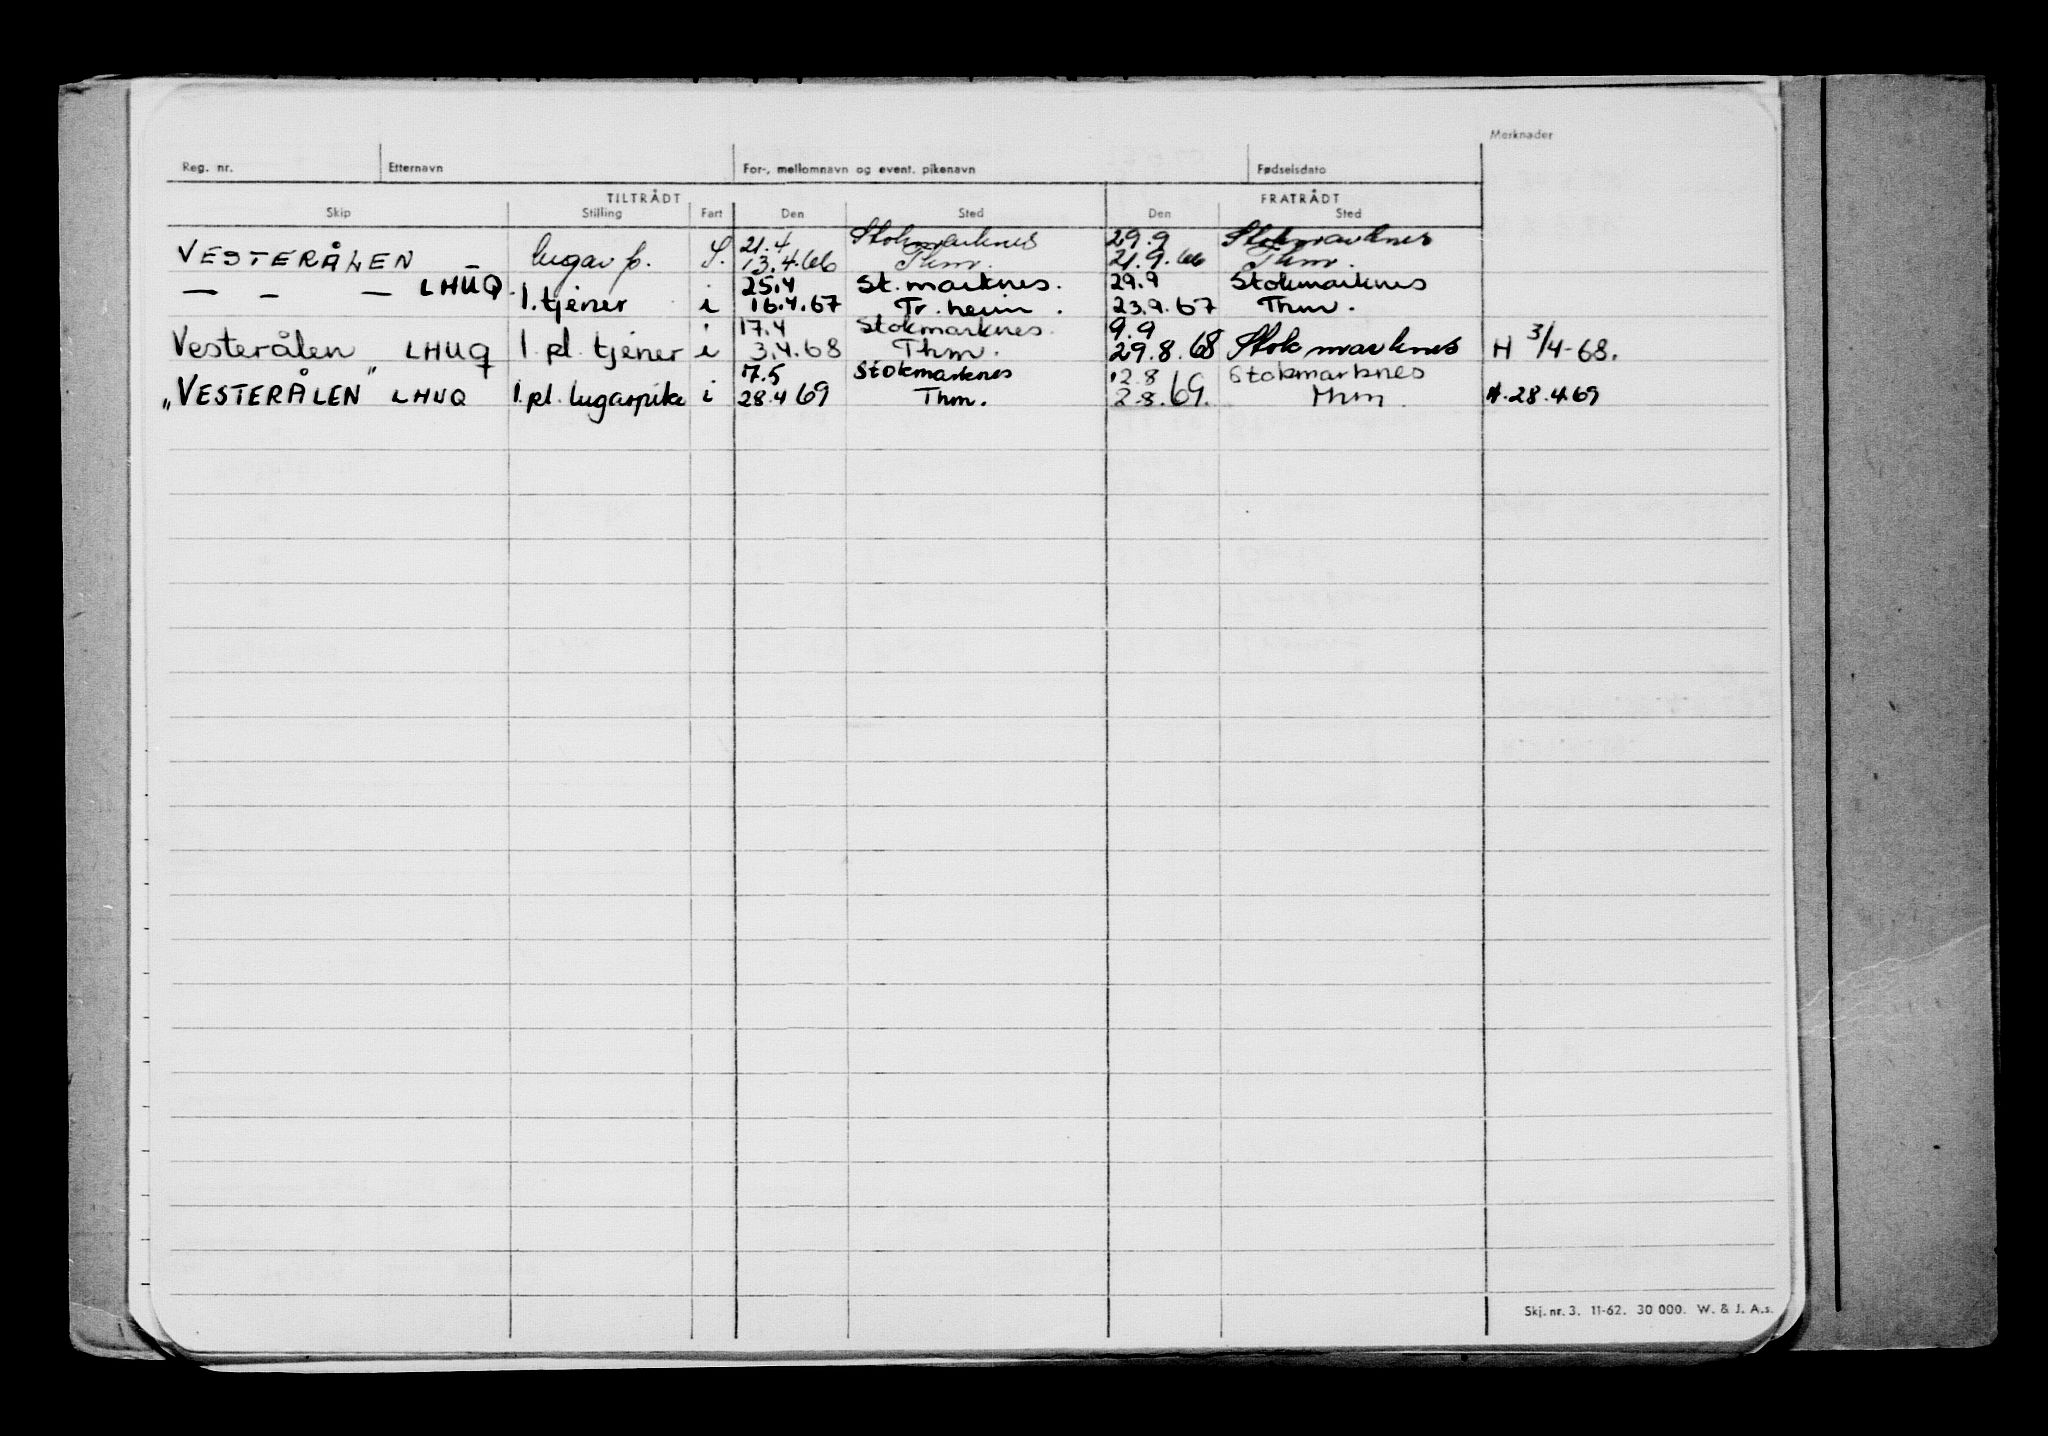 Merknader
Reg. nr. Etternavn For-, mellomnavn og event. pikenavn Fødselsdato
TILTRÅDT FRATRÅDT
Skip Stilling Fart Den Sted Den Sted
21.4 Stokmarknes 29.9 Stokmarknes
VESTERÅLEN lugar p. 13.4.66 Thm. 21.9.66 Thm.
25.4 St. marknes. 29.9 Stokmarknes
— – — LHUQ. 1. tjener i 16.4.67 Tr. heim. 23.9.67 Thm.
17.4 Stokmarknes. 9.9
Vesterålen LHUQ 1. pl. tjener i 3.4.68 Thm. 29.8.68 Stokmarknes H 3/4-68.
7.5 Stokmarknes 12.8 Stokmarknes
„VESTERÅLEN" LHUQ 1. pl. lugarpike i 28.4 69 Thm. 2.8.69. Thm. H. 28.4.69
Skj. nr. 3. 11-62. 30 000. W. & J. A.s.